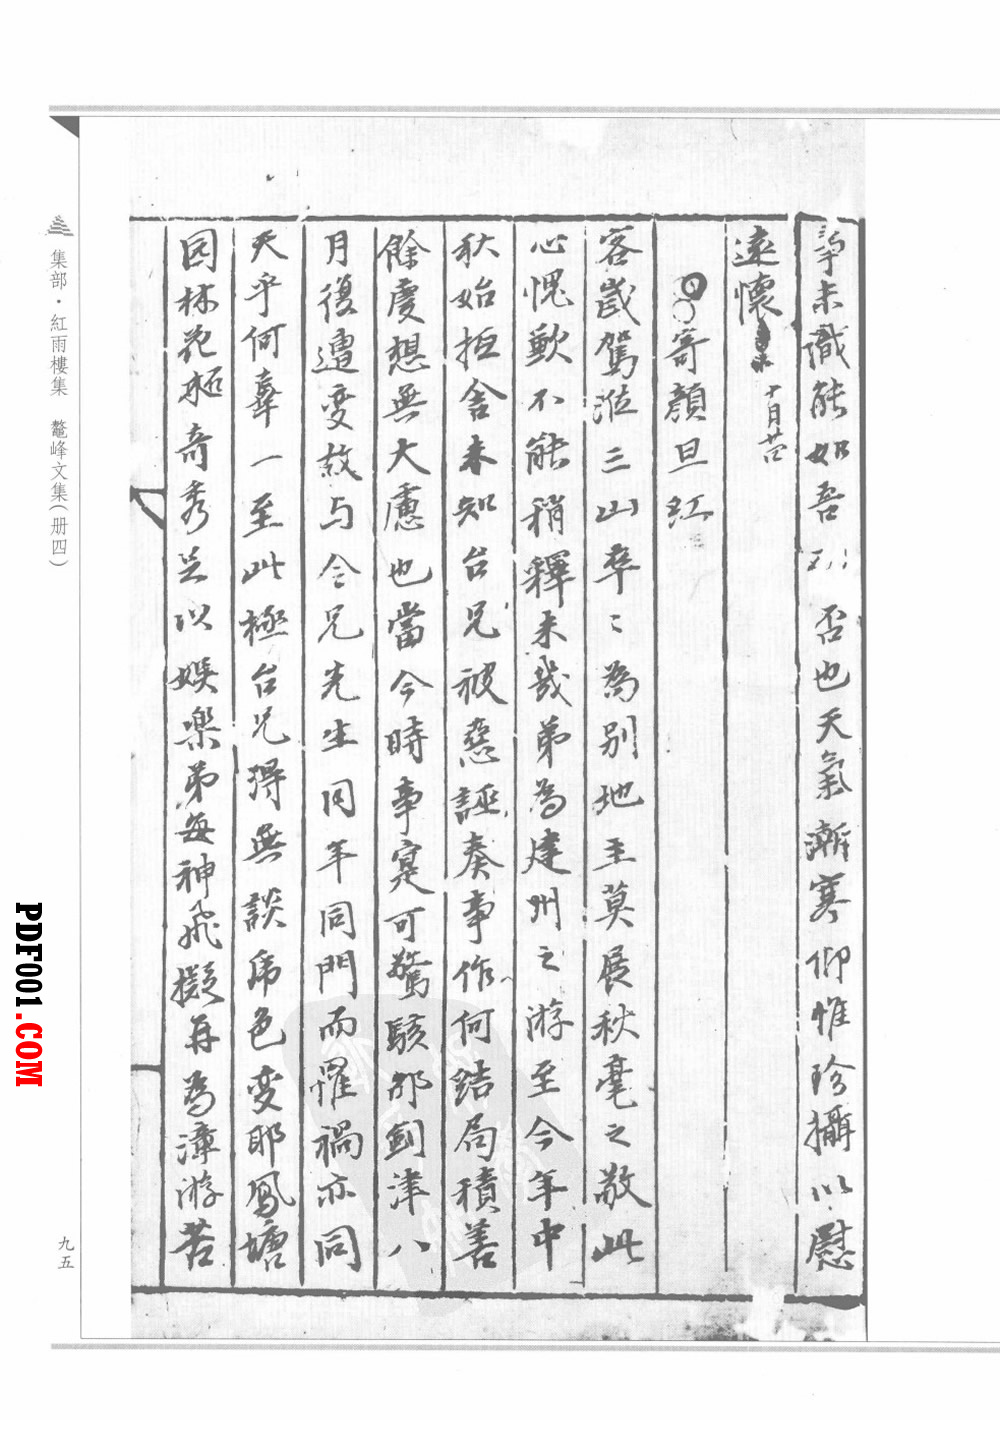 未識能如吾 否也天氣漸寒仰惟珍攝以慰
遠懷 十月廿
寄顏旦紅
客歲駕涖三山卒〻為別地主莫展秋毫之敬此
心愧歉不能稍釋未幾弟為建州之游至今年中
秋始抵舍未知台兄被惡誣奏事作何結局積善
餘慶想無大慮也當今時事寔可驚駭邵劍津八
月復遭變故与令兄先生同年同門而罹禍亦同
天乎何辜一至此極台兄得無談虎色變耶鳳塘
園林花 奇秀足以娛樂弟每神飛擬再為漳游苦
集部·紅雨樓集 鼇峰文集(册四)
九五
PDF001.COM